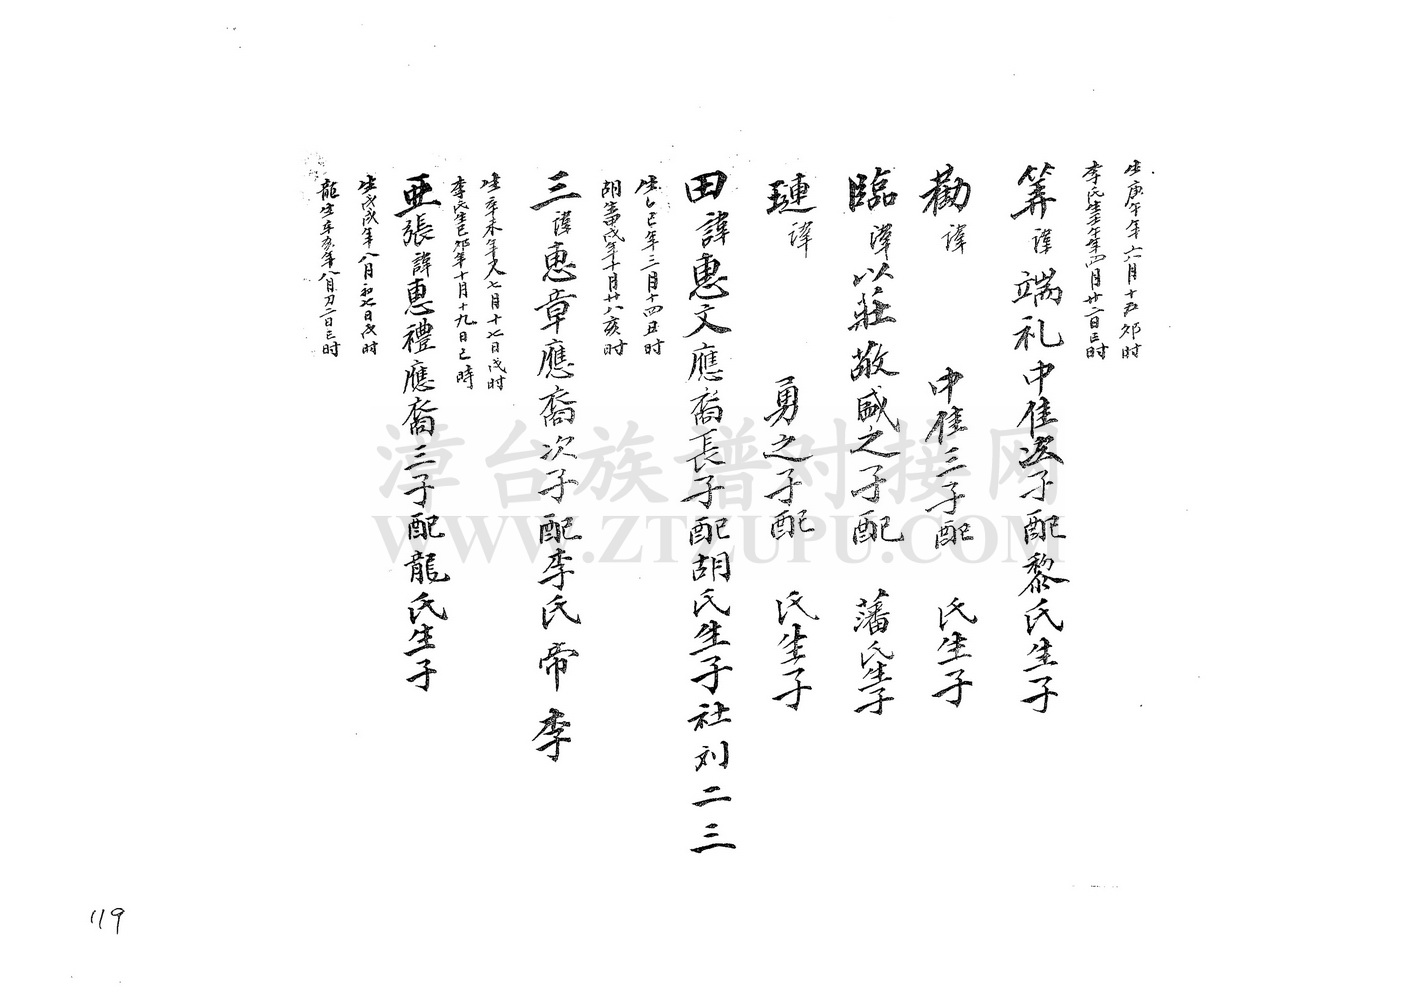 生庚午年六月十五卯时
李氏生壬午年四月廿二日巳时
筭諱端礼中隹次子配黎氏生子
勸諱 中隹三子配 氏生子
臨諱以莊敬盛之子配 藩氏生子
璉諱 勇之子配 氏生子
田諱惠文應裔長子配胡氏生子社刘二三
生乙巳年三月十四丑时
胡生甲戌年十月廿八亥时
三諱惠章應裔次子配李氏帝 李
生辛未年又七月十七日戌时
李氏生己卯年十月十九日己時
亞張諱惠禮應裔三子配龍氏生子
生戊戌年八月初七日戌时
龍生辛亥年八月初二日巳时
漳台族谱对接网
WWW.ZTZUPU.COM
119